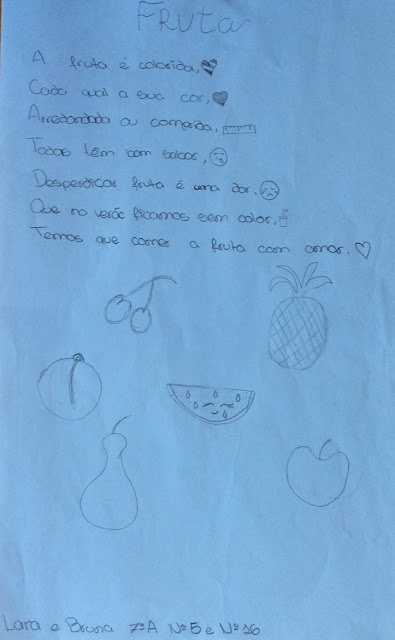 FRUTA
A fruta é colorida,
Cada qual a sua cor,
Arredondada ou comprida,
Todas têm bom sabor,
Desperdiçar fruta é uma dor,
Que no verão ficamos sem calor,
Temos que comer a fruta com amor.
Lara e Bruna 7ºA Nº5 e Nº16